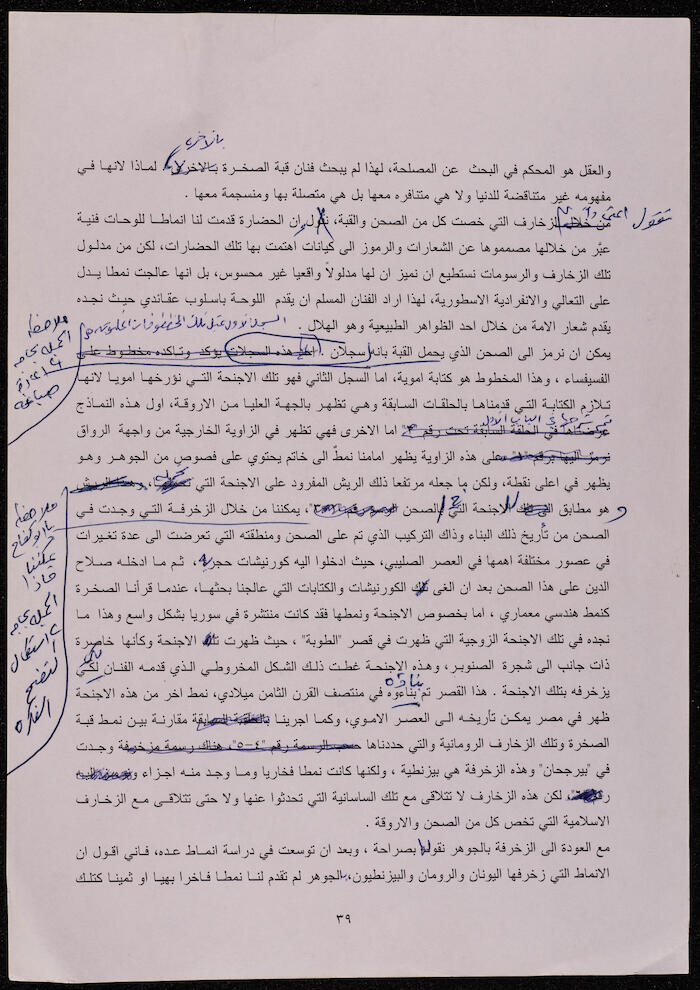 بالاخرى
والعقل هو المحكم في البحث عن المصلحة، لهذا لم يبحث فنان قبة الصخرة بالاخرى، لماذا لانها في
مفهومه غير متناقضة للدنيا ولا هي متنافره معها بل هي متصلة بها ومنسجمة معها .
من خلال الزخارف التي خصت كل من الصحن والقبة، نقول ان الحضارة قدمت لنا انماطا للوحات فنية
عبّر من خلالها مصمموها عن الشعارات والرموز الى كيانات اهتمت بها تلك الحضارات، لكن من مدلول
تلك الزخارف والرسومات نستطيع ان نميز ان لها مدلولاً واقعيا غير محسوس، بل انها عالجت نمطا يدل
على التعالي والانفرادية الاسطورية، لهذا اراد الفنان المسلم ان يقدم اللوحة باسلوب عقائدي حيث نجده
يقدم شعار الامة من خلال احد الظواهر الطبيعية وهو الهلال .
السجل الاول تمثل تلك المخطوطات
يمكن ان نرمز الى الصحن الذي يحمل القبة بانه سجلان . احد هذه السجلات يؤكد وتاكده مخطوط على
الفسيفساء ، وهذا المخطوط هو كتابة اموية، اما السجل الثاني فهو تلك الاجنحة التي نؤرخها امويا لانها
تلازم الكتابة التي قدمناها بالحلقات السابقة وهي تظهر بالجهة العليا من الاروقة، اول هذه النماذج
الباب الاول
عرضناها في الحلقة السابقة تحت رقم اما الاخرى فهي تظهر في الزاوية الخارجية من واجهة الرواق
نرمز اليها برقم على هذه الزاوية يظهر امامنا نمطٌ الى خاتم يحتوي على فصوص من الجوهر وهو
يظهر في اعلى نقطة، ولكن ما جعله مرتفعا ذلك الريش المفرود على الاجنحة التي
وهو مطابق الاجنحة التي بالصحن يمكننا من خلال الزخرفة التي وجدت في
الصحن من تأريخ ذلك البناء وذاك التركيب الذي تم على الصحن ومنطقته التي تعرضت الى عدة تغيرات
في عصور مختلفة اهمها في العصر الصليبي، حيث ادخلوا اليه كورنيشات حجرية، ثم ما ادخله صلاح
الدين على هذا الصحن بعد ان الغى تلك الكورنيشات والكتابات التي عالجنا بحثها، عندما قرأنا الصخرة
كنمط هندسي معماري ، اما بخصوص الاجنحة ونمطها فقد كانت منتشرة في سوريا بشكل واسع وهذا ما
نجده في تلك الاجنحة الزوجية التي ظهرت في قصر "الطوبة" ، حيث ظهرت تلك الاجنحة وكأنها خاصرة
ذات جانب الى شجرة الصنوبر، وهذه الاجنحة غطت ذلك الشكل المخروطي الذي قدمه الفنان لكي
بناؤه
يزخرفه بتلك الاجنحة . هذا القصر تم بناءوه في منتصف القرن الثامن ميلادي، نمط اخر من هذه الاجنحة
ظهر في مصر يمكن تأريخه الى العصر الاموي، وكما اجرينا بالحلقة السابقة مقارنة بين نمط قبة
الصخرة وتلك الزخارف الرومانية والتي حددناها حسب الرسمة رقم "٤-٥"، هناك رسمة مزخرفة وجدت
في "بيرجحان" وهذه الزخرفة هي بيزنطية ، ولكنها كانت نمطا فخاريا وما وجد منه اجزاء
لكن هذه الزخارف لا تتلاقى مع تلك الساسانية التي تحدثوا عنها ولا حتى تتلاقى مع الزخارف
الاسلامية التي تخص كل من الصحن والاروقة .
مع العودة الى الزخرفة بالجوهر نقولها بصراحة ، وبعد ان توسعت في دراسة انماط عده، فاني اقول ان
الانماط التي زخرفها اليونان والرومان والبيزنطيون، بالجوهر لم تقدم لنا نمطا فاخرا بهيا او ثمينا كتلك
٣٩
ملاحظة
الجملة بحاجة
صياغة
ملاحظة
الجملة بحاجة